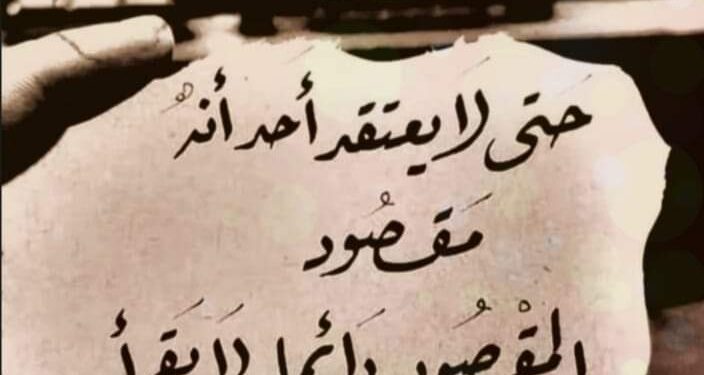 حَتى لَا يعتقد أحد أنهُ
مَقصُود
المقْصُود دَائما لَا يَقرأ